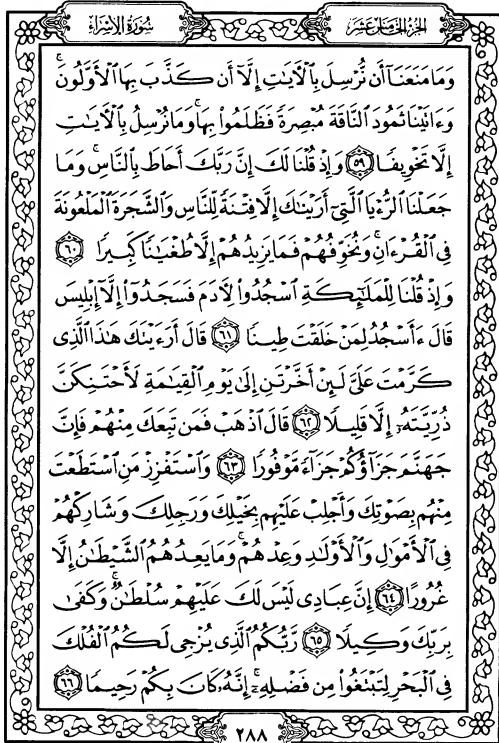 الجزء الخامس عشر
سورة الإسراء
وَمَا مَنَعَنَآ أَن نُّرْسِلَ بِٱلْأَيَٰتِ إِلَّآ أَن كَذَّبَ بِهَا ٱلْأَوَّلُونَ ۚ
وَءَاتَيْنَا ثَمُودَ ٱلنَّاقَةَ مُبْصِرَةً فَظَلَمُوا۟ بِهَا ۚ وَمَا نُرْسِلُ بِٱلْأَيَٰتِ
إِلَّا تَخْوِيفًا ٥٩ وَإِذْ قُلْنَا لَكَ إِنَّ رَبَّكَ أَحَاطَ بِٱلنَّاسِ ۚ وَمَا
جَعَلْنَا ٱلرُّءْيَا ٱلَّتِىٓ أَرَيْنَٰكَ إِلَّا فِتْنَةً لِّلنَّاسِ وَٱلشَّجَرَةَ ٱلْمَلْعُونَةَ
فِى ٱلْقُرْءَانِ ۚ وَنُخَوِّفُهُمْ فَمَا يَزِيدُهُمْ إِلَّا طُغْيَٰنًا كَبِيرًا ٦٠
وَإِذْ قُلْنَا لِلْمَلَٰٓئِكَةِ ٱسْجُدُوا۟ لِأَدَمَ فَسَجَدُوٓا۟ إِلَّآ إِبْلِيسَ
قَالَ ءَأَسْجُدُ لِمَنْ خَلَقْتَ طِينًا ٦١ قَالَ أَرَءَيْتَكَ هَٰذَا ٱلَّذِى
كَرَّمْتَ عَلَىَّ لَئِنْ أَخَّرْتَنِ إِلَىٰ يَوْمِ ٱلْقِيَٰمَةِ لَأَحْتَنِكَنَّ
ذُرِّيَّتَهُۥٓ إِلَّا قَلِيلًا ٦٢ قَالَ ٱذْهَبْ فَمَن تَبِعَكَ مِنْهُمْ فَإِنَّ
جَهَنَّمَ جَزَآؤُكُمْ جَزَآءً مَّوْفُورًا ٦٣ وَٱسْتَفْزِزْ مَنِ ٱسْتَطَعْتَ
مِنْهُم بِصَوْتِكَ وَأَجْلِبْ عَلَيْهِم بِخَيْلِكَ وَرَجِلِكَ وَشَارِكْهُمْ
فِى ٱلْأَمْوَٰلِ وَٱلْأَوْلَٰدِ وَعِدْهُمْ ۚ وَمَا يَعِدُهُمُ ٱلشَّيْطَٰنُ إِلَّا
غُرُورًا ٦٤ إِنَّ عِبَادِى لَيْسَ لَكَ عَلَيْهِمْ سُلْطَٰنٌ ۚ وَكَفَىٰ
بِرَبِّكَ وَكِيلًا ٦٥ رَّبُّكُمُ ٱلَّذِى يُزْجِى لَكُمُ ٱلْفُلْكَ
فِى ٱلْبَحْرِ لِتَبْتَغُوا۟ مِن فَضْلِهِۦٓ ۚ إِنَّهُۥ كَانَ بِكُمْ رَحِيمًا ٦٦
٢٨٨